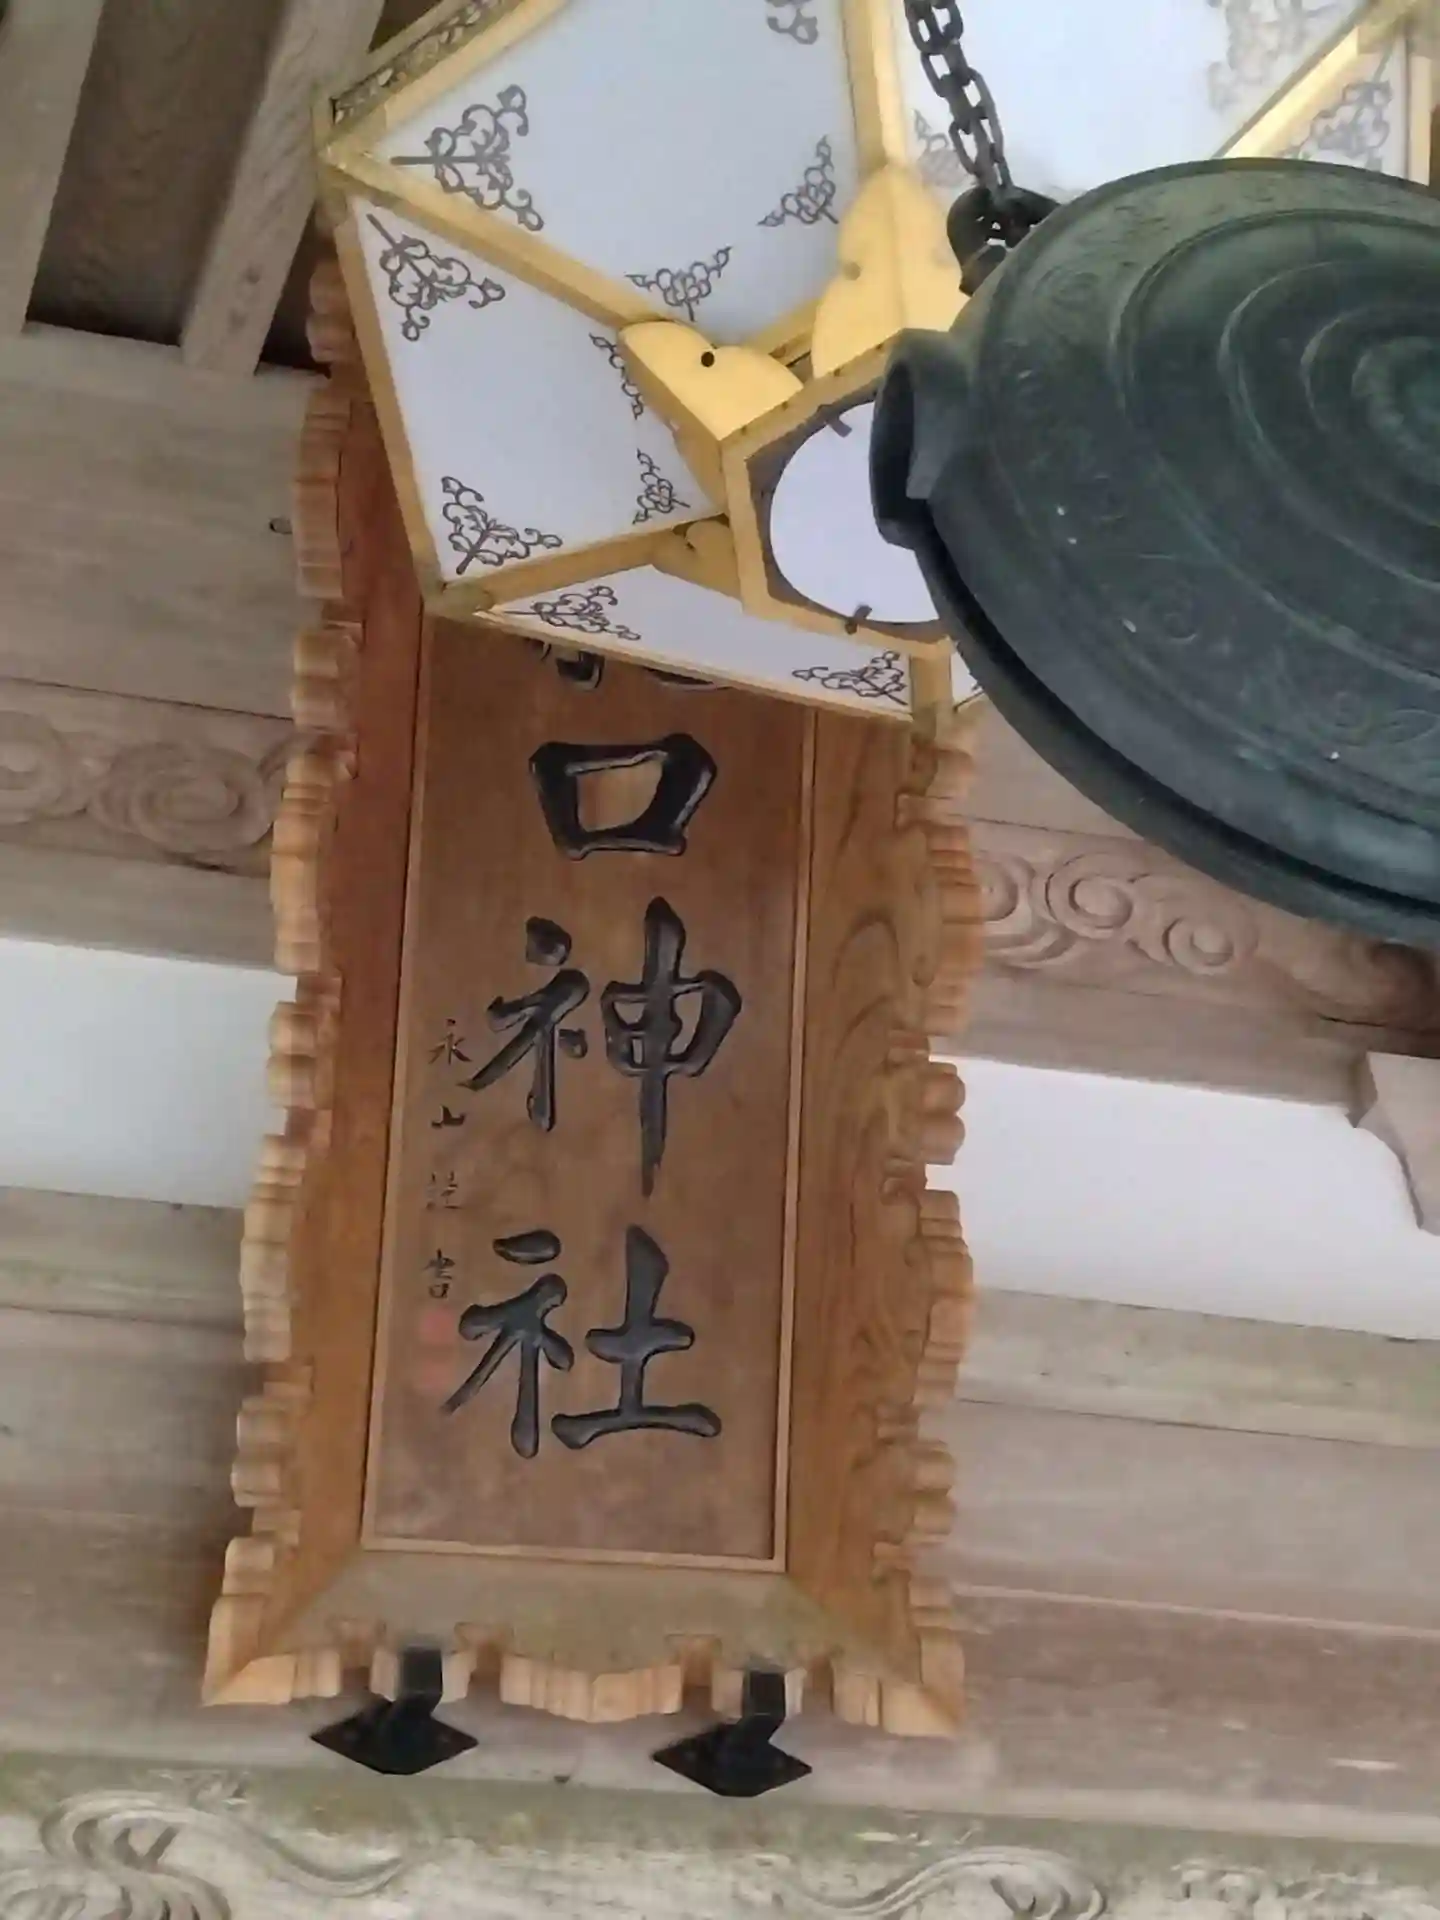 口神社
永山
書